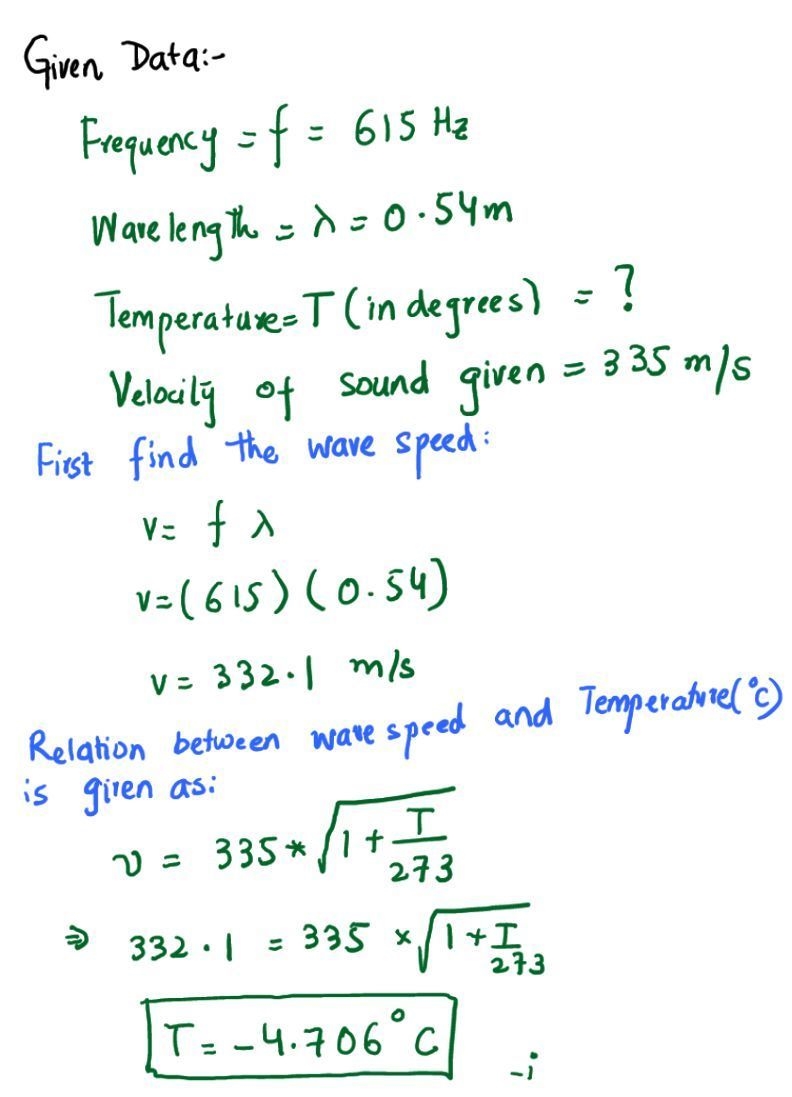 Given Data:-
Frequency = f = 615 Hz
Wavelength = λ = 0.54m
Temperature = T (in degrees) = ?
Velocity of sound given = 335 m/s
First find the wave speed:
v = f λ
v = (615) (0.54)
v = 332.1 m/s
Relation between wave speed and Temperature(°C)
is given as:
v = 335 * √(1 + T/273)
⇒ 332.1 = 335 × √(1 + T/273)
T = -4.706°C -i